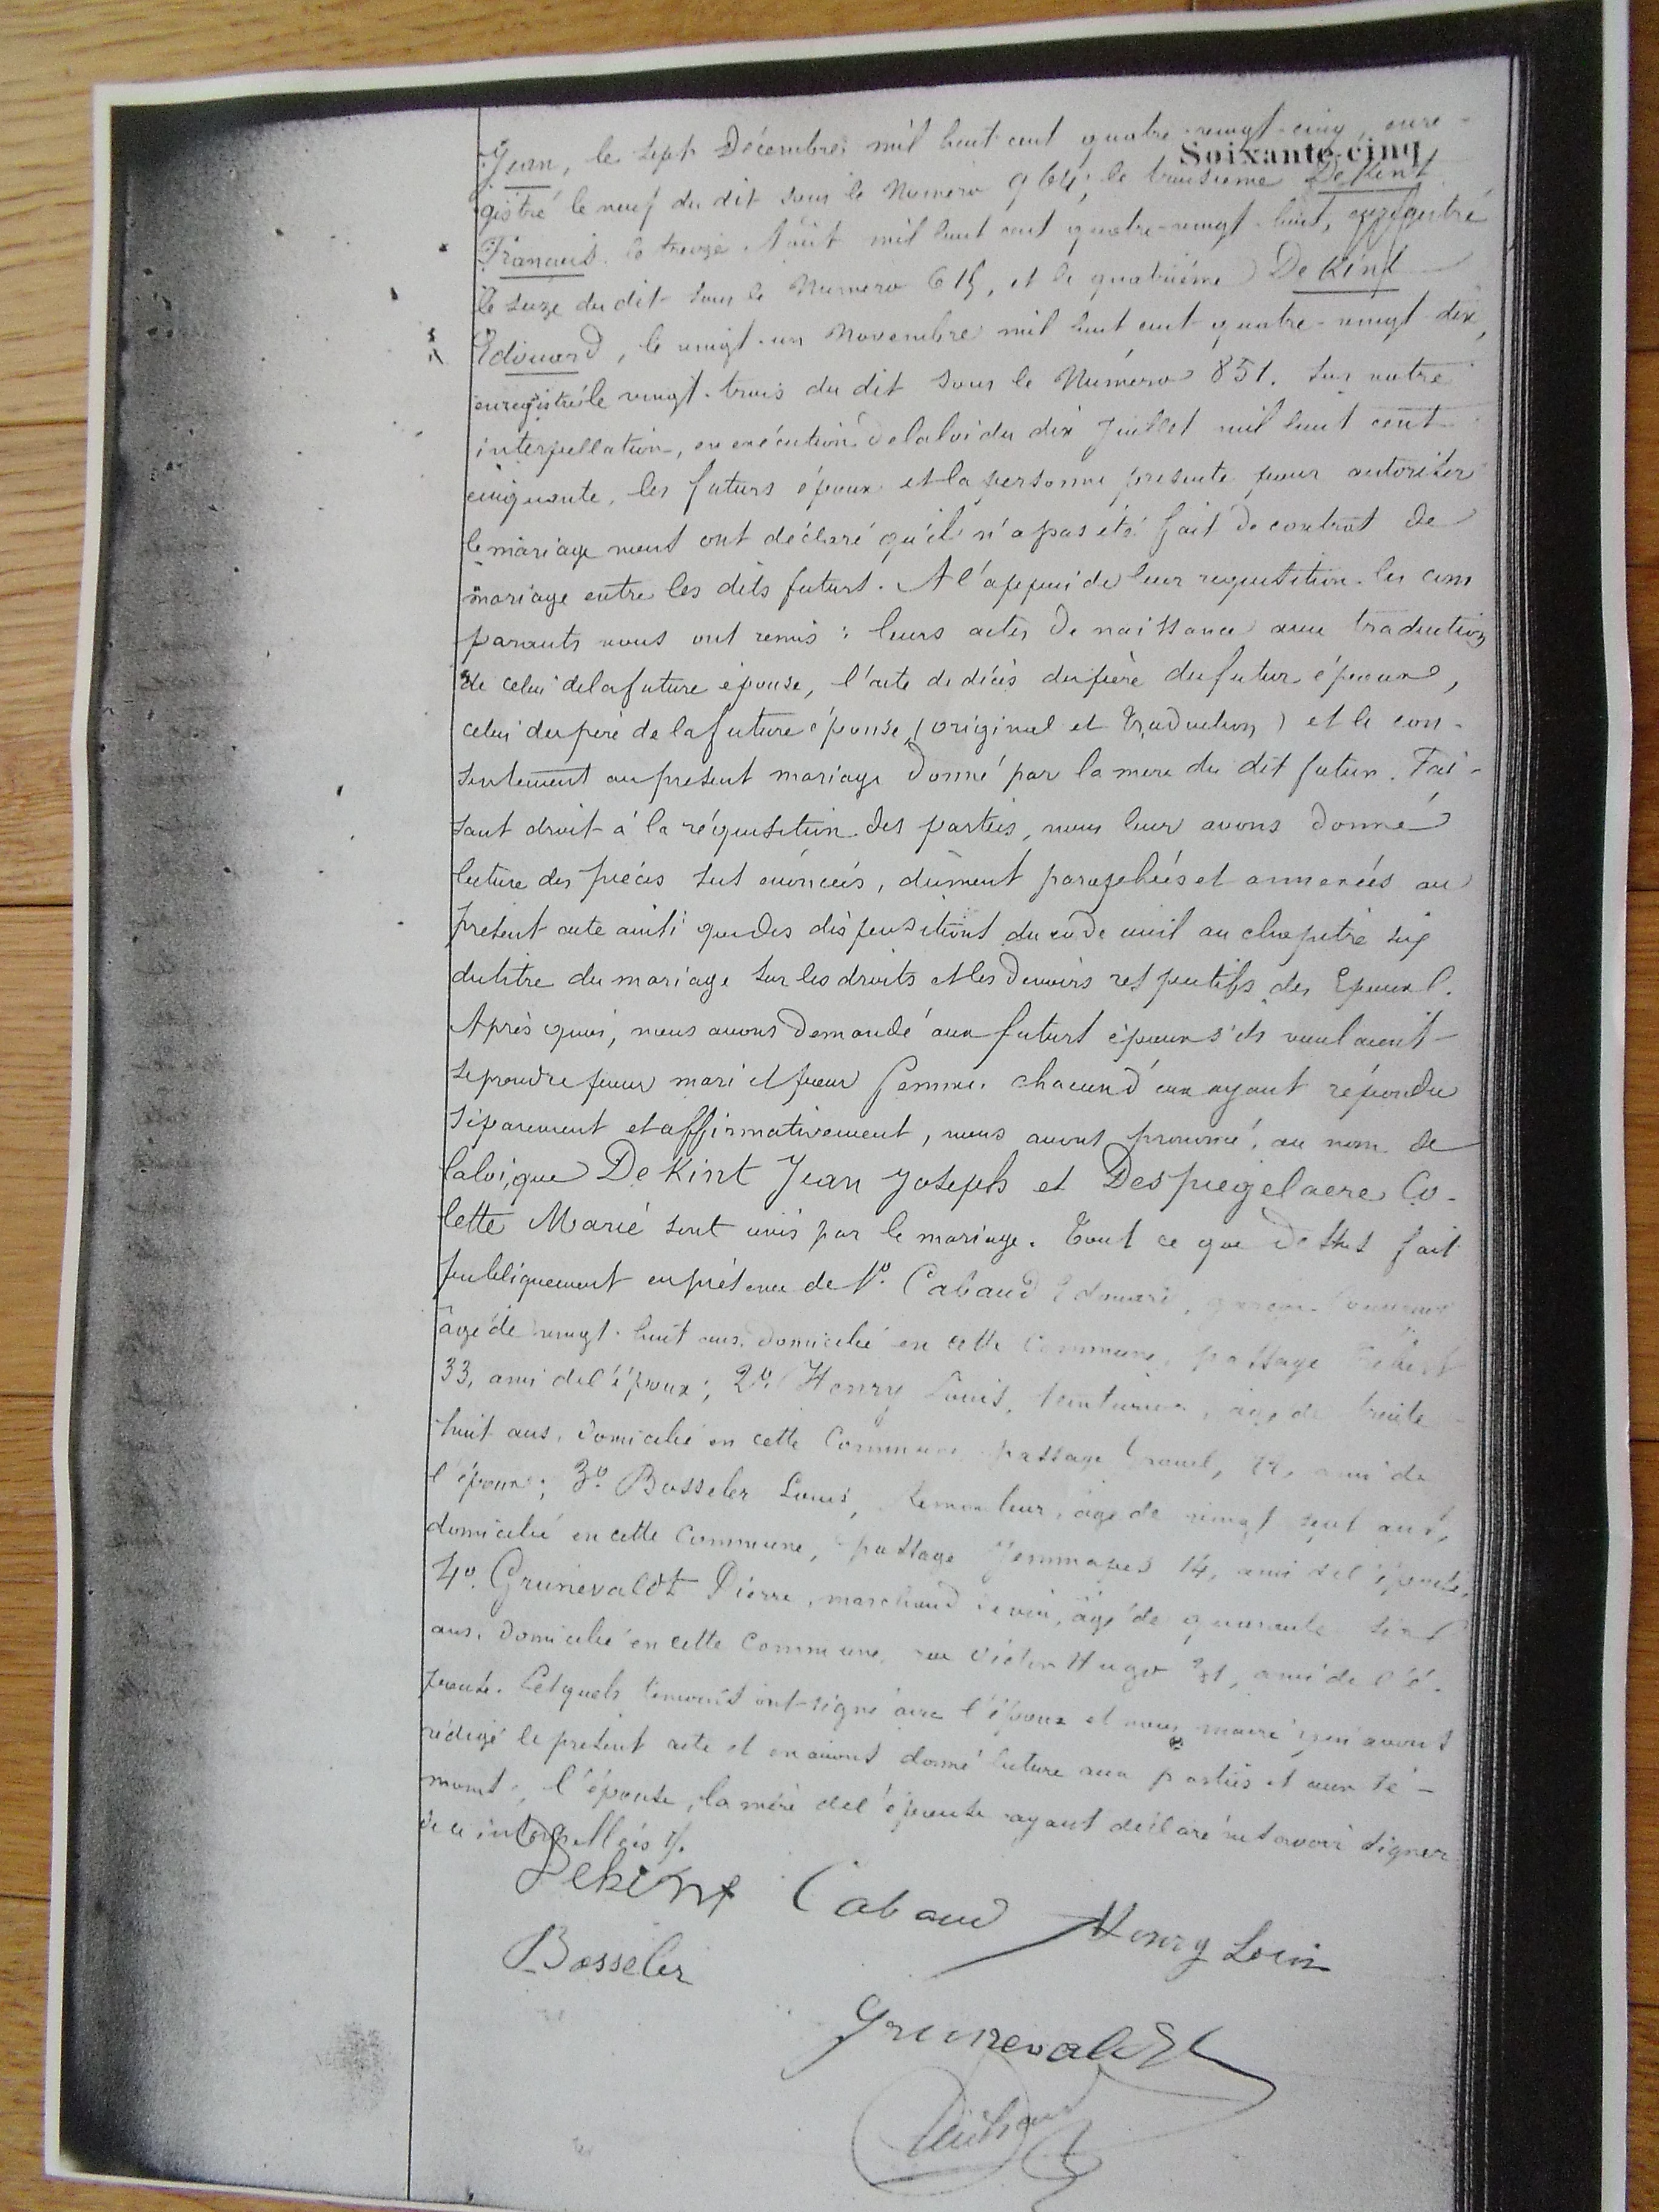 Soixante-cinq
Jean, le sept Décembre mil huit cent quatre-vingt-cinq, enre-
gistré le neuf du dit sous le Numéro 964; le troisième De Kint
François le treize Août mil huit cent quatre-vingt-huit, enregistré
le seize du dit sous le Numéro 615, et le quatrième De Kint
Edouard, le vingt-un Novembre mil huit cent quatre-vingt-dix,
enregistré le vingt-trois du dit sous le Numéro 851. Sur notre
interpellation, en exécution de la loi du dix Juillet mil huit cent
cinquante, les futurs époux et la personne présente pour autoriser
le mariage nous ont déclaré qu'il n'a pas été fait de contrat de
mariage entre les dits futurs. A l'appui de leur réquisition les com
parants nous ont remis : leurs actes de naissance avec traduction
de celui de la future épouse, l'acte de décès du père du futur époux,
celui du père de la future épouse (original et traduction) et le con-
sentement au présent mariage donné par la mère du dit futur. Fai-
sant droit à la réquisition des parties, nous leur avons donné
lecture des pièces sus énoncées, dûment paraphées et annexées au
présent acte ainsi que des dispositions du code civil au chapitre six
du titre du mariage sur les droits et les devoirs respectifs des Epoux.
Après quoi, nous avons demandé aux futurs époux s'ils veulent
se prendre pour mari et pour femme. chacun d'eux ayant répondu
séparément et affirmativement, nous avons prononcé, au nom de
la loi, que De Kint Jean Joseph et Despiegelaere Co-
lette Marie sont unis par le mariage. Tout ce que dessus fait
publiquement en présence de 1º. Cabaud Edouard, garçon
âgé de vingt-huit ans, domicilié en cette Commune, passage
33, ami de l'époux; 2º. Henry Louis, teinturier, âgé de trente-
huit ans, domicilié en cette Commune passage ami de
l'époux; 3º. Bosseler Louis, âgé de vingt sept ans,
domicilié en cette Commune, passage Jemmapes 14, ami de l'épouse,
4º. Grunevaldt Pierre, marchand de vin, âgé de quarante
ans, domicilié en cette Commune, rue Victor Hugo ami de l'é-
pouse. Lesquels témoins ont signé avec l'époux et nous maire qui avons
rédigé le présent acte et en avons donné lecture aux parties et aux té-
moins, l'épouse, la mère de l'épouse ayant déclaré ne savoir signer
de ce interpellées ./.
Dekint Cabaud Henry Louis
Bosseler
Grunevaldt